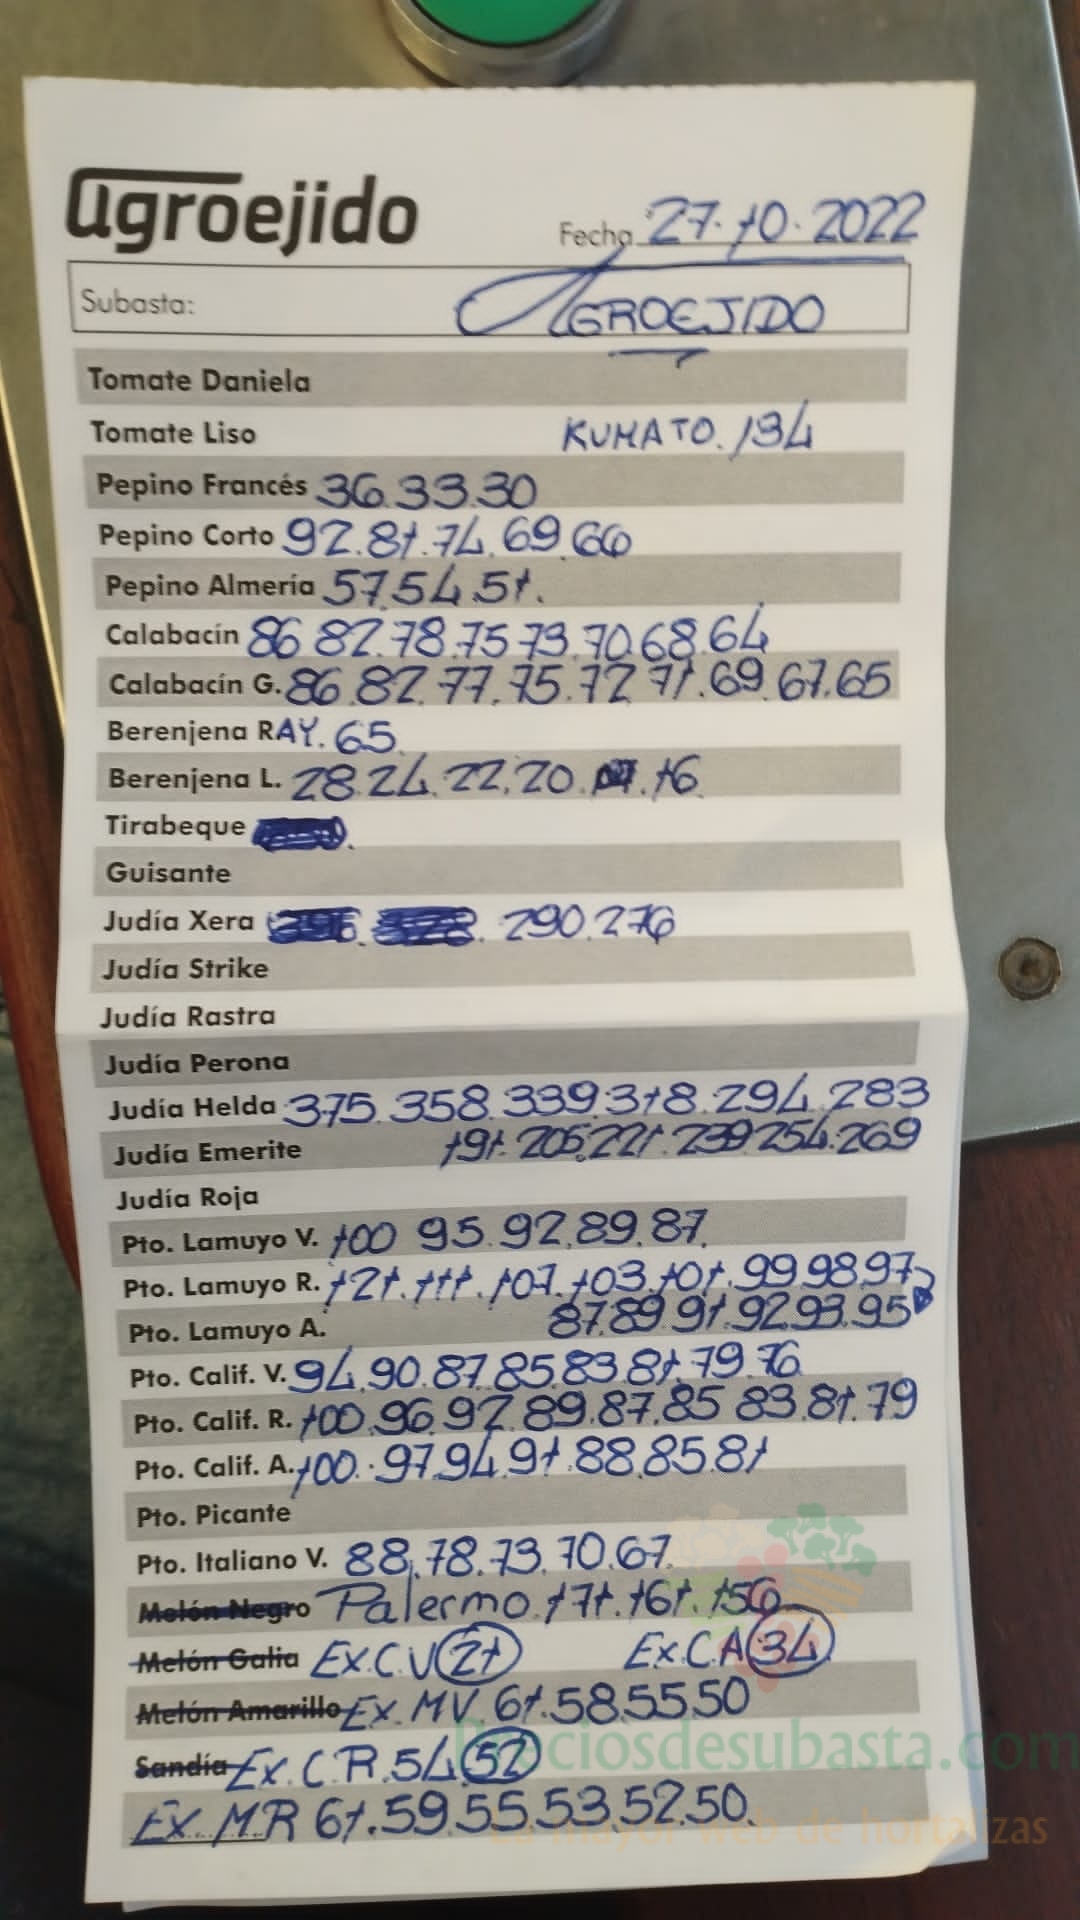 agroejido
Fecha 27.10.2022
Subasta: AGROEJIDO
Tomate Daniela
Tomate Liso KUMATO. 134
Pepino Francés 36.33.30
Pepino Corto 92.81.74.69.66
Pepino Almería 57.54.51.
Calabacín 86 82.78.75 73.70.68.64
Calabacín G. 86.82.77.75.72 71.69.67.65
Berenjena RAY. 65.
Berenjena L. 28.24.22.20. .16.
Tirabeque
Guisante
Judía Xera 290.276
Judía Strike
Judía Rastra
Judía Perona
Judía Helda 375.358.339.318.294.283
Judía Emerite 191.205.221.239.254.269
Judía Roja
Pto. Lamuyo V. 100 95.92.89.87.
Pto. Lamuyo R. 121.111.107.103.101.99.98.97
Pto. Lamuyo A. 87.89.91.92.93.95
Pto. Calif. V. 94.90.87.85.83.81.79.76
Pto. Calif. R. 100.96.92.89.87.85 83.81.79
Pto. Calif. A. 100.97.94.91.88.85.81
Pto. Picante
Pto. Italiano V. 88.78.73.70.67.
Melón Negro Palermo.171.161.156
Melón Galia Ex.C.V 21 Ex.C.A 34
Melón Amarillo Ex. MV. 61.58.55.50
Sandía Ex.C.R.54.52
Ex.M.R 61.59.55.53.52.50.
Preciosdesubasta.com
La mayor web de hortalizas